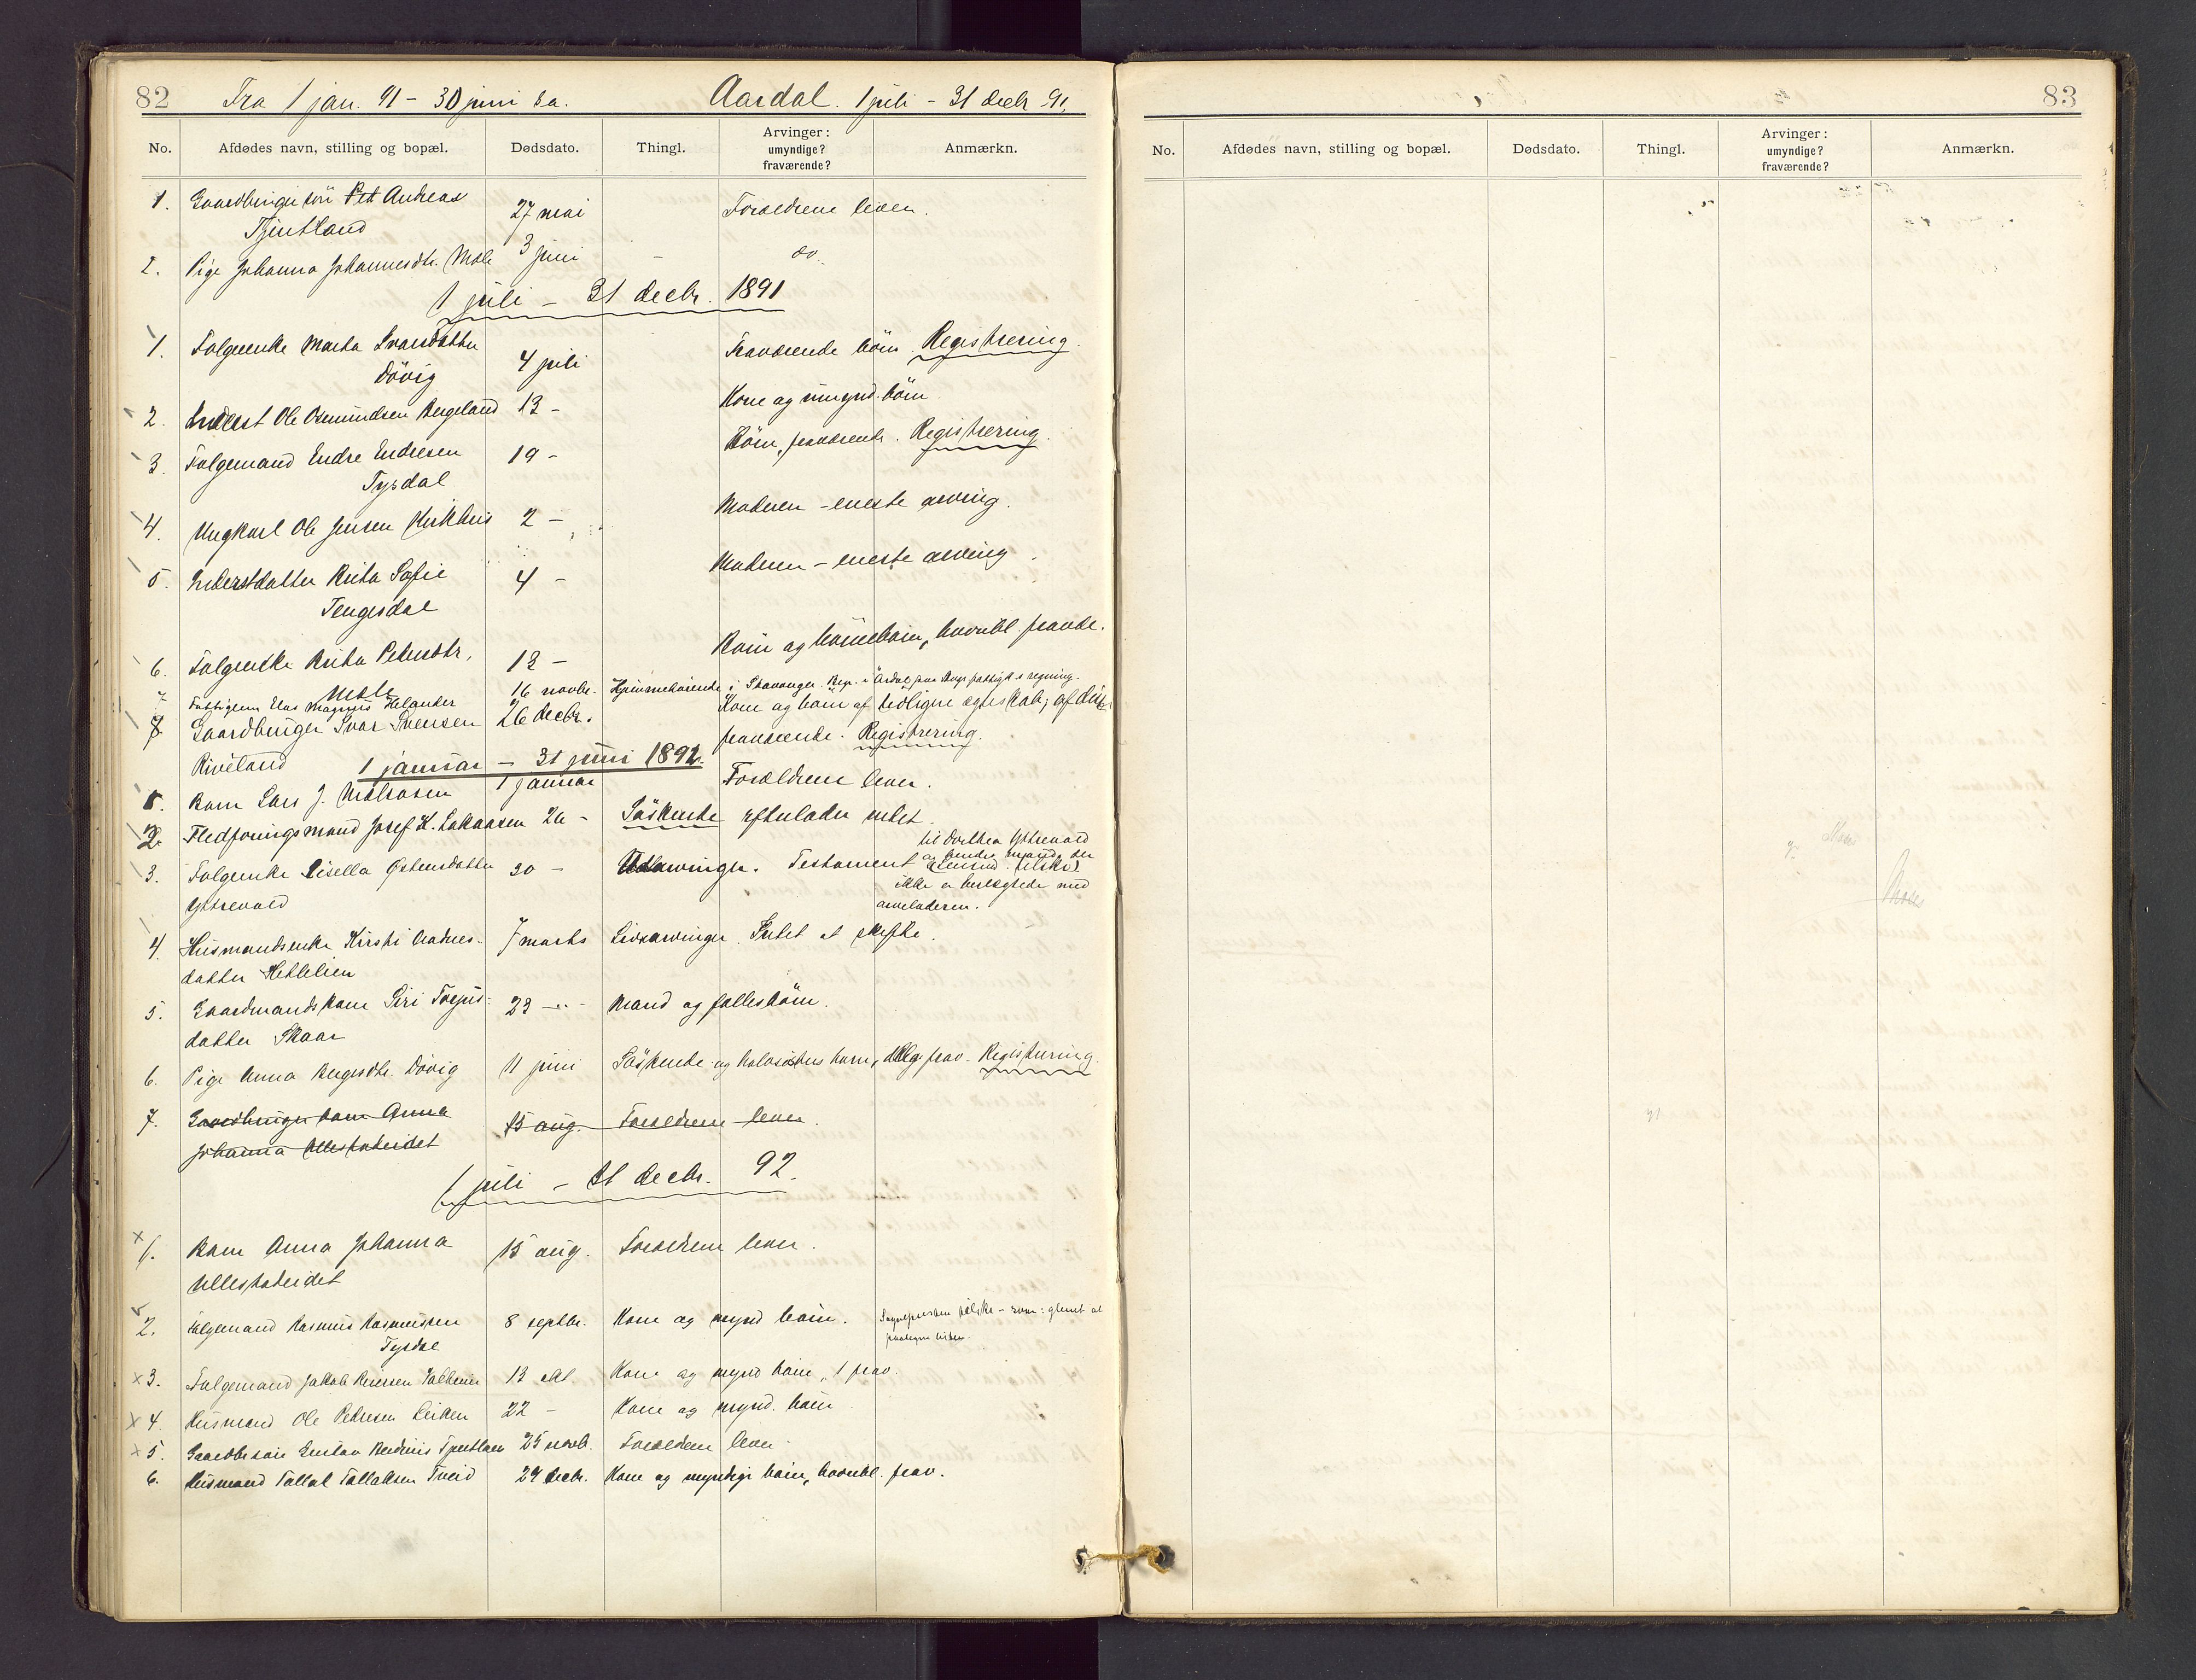 82 Fra 1 jan. 91 - 30 juni s.a. Aardal. 1 juli - 31 decbr. 91.
No. Afdødes navn, stilling og bopæl. Dødsdato. Thingl. Arvinger: umyndige? fraværende? Anmærkn.
1. Gaardbruger sön Pet Andreas
Tjentland 27 mai Forældrene lever.
2. Pige Johanna Johannesdtr. Mæle 3 juni - do.
1 juli - 31 decbr. 1891
1. Folgeenke Marta Ivarsdatter
Dövig 4 juli Fraværende börn. Registrering.
2. Inderst Ole Osmundsen Bergeland 13 - Kone og umynd. börn
3. Folgemand Endre Endresen
Tysdal 19 - Börn, fraværende. Registrering.
4. Ungkarl Ole Jensen Kirkhus 2 - Moderen - eneste arving.
5. Inderstdatter Berta Sofie
Tengesdal 4 - Moderen - eneste arving.
6. Folgeenke Berta Petersdtr.
Mæle 13 - Börn og börnebörn, hvoribl. fravær.
7 Fattiglem Elas Magnus Helander 16 novbr. Hjemmehörende i Stavanger. Begr. i Årdal paa Stvgr. fattigk.s regning.
8. Gaardbruger Ivar Svensen
Riveland 26 decbr. Kone og börn af tidligere ægteskab; af disse
fraværende. Registrering.
1 januar - 31 juni 1892.
1. Barn Lars J. Mælsosen 1 januar Forældrene lever.
2. Fledföringsmand Josef H. Lakaasen 20 - Söskende efterlader intet.
3. Folgeenke Lisella Østensdatter
Yttrevold 30 - Udarvinger. Testament til Dorthea Yttrevold
og hendes mand, der
ikke er beslægtede med
arveladeren.
4. Husmandsenke Kirsti Aadnes-
datter Hetlelien 7 marts Livsarvinger. Intet at skifte.
5. Gaardmandskone Siri Torjus-
datter Skaar 23 - Mand og fællesbörn.
6. Pige Anna Bergesdtr. Dövig 11 juni Söskende og halvsösters barn, delvg frav. Registrering.
7. Gaardbruger barn Anna
Johanna Ullestadeidet 15 aug. Forældrene lever.
1 juli - 31 decbr. 92.
x 1. Barn Anna Johanna
Ullestadeidet 15 aug. Forældrene lever.
2. Folgemand Rasmus Rasmussen
Tysdal 8 septbr. Kone og mynd börn. Sognepresten
x 3. Folgemand Jakob Reiersen Valheim 13 okt. Kone og mynd börn, 1 frav.
x 4. Husmand Ole Petersen Leiken 22 - Kone og mynd. börn
x 5. Gaardbr sön Gustav Berdinus Tjentland 25 novb. Forældrene lever
6. Husmand Tollak Tollaksen Tveid 24 decbr. Kone og myndige börn, hvoribl. frav.
83
No. Afdødes navn, stilling og bopæl. Dødsdato. Thingl. Arvinger: umyndige? fraværende? Anmærkn.